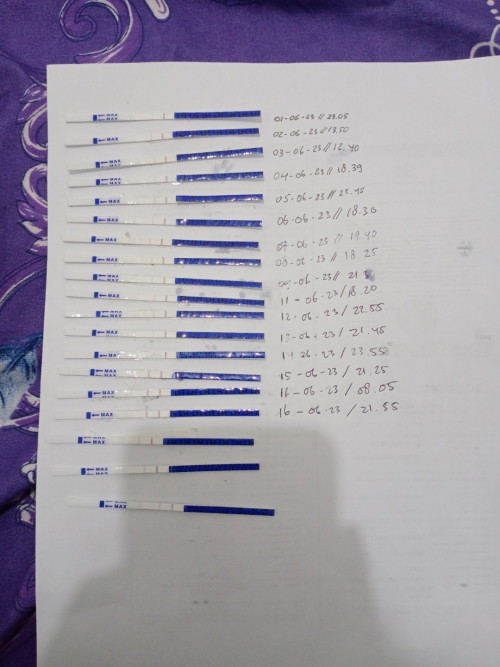 MAX 01-06-23 // 23.05
MAX 02-06-23 // 13.50
MAX 03-06-23 // 12.40
MAX 04-06-23 // 18.39
MAX 05-06-23 // 23.45
MAX 06-06-23 // 18.30
MAX 07-06-23 // 19.40
MAX 08-06-23 // 18.25
MAX 09-06-23 //
MAX 11-06-23 / 18.20
MAX 12-06-23 / 22.55
MAX 13-06-23 / 21.45
MAX 23 / 23.55
MAX 15-06-23 / 21.25
MAX 16-06-23 / 08.05
MAX 16-06-23 / 21.55
MAX
MAX
MAX